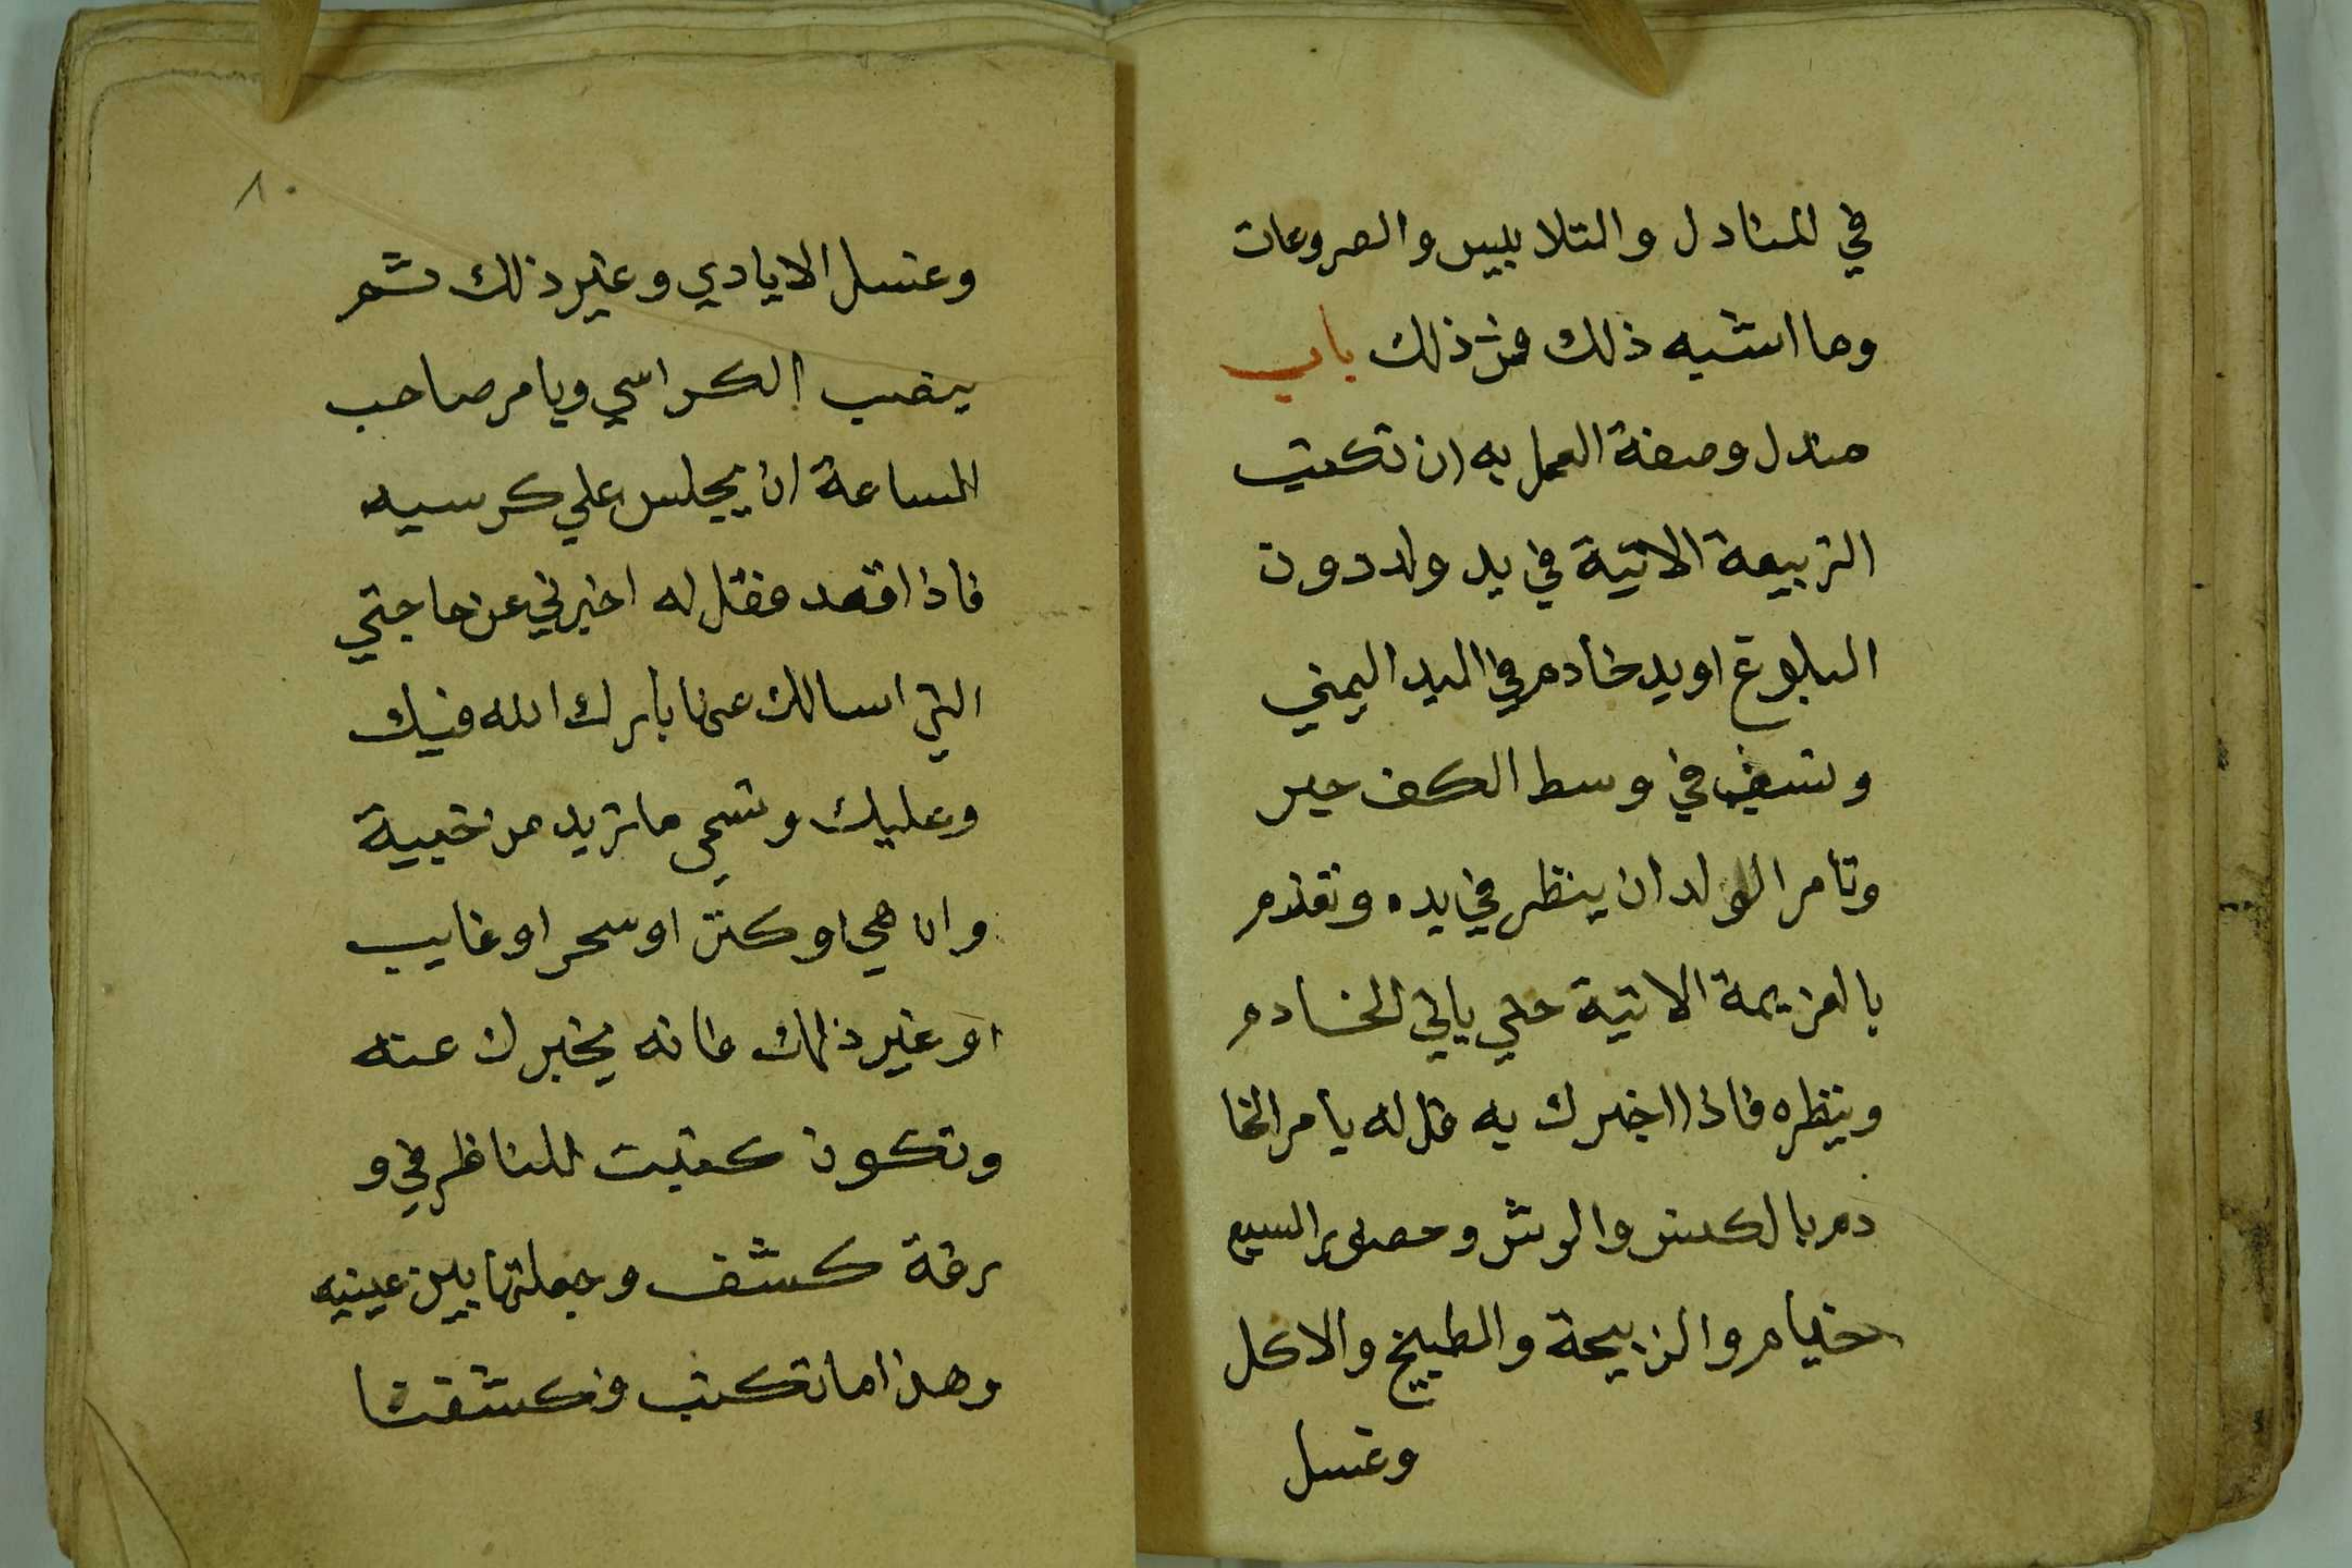 في المنادل والتلابيس والصروعات
وما اشبه ذلك فمن ذلك باب
مندل وصفة العمل به ان تكتب
التربيعة الاتية في يد ولد دون
البلوغ او يد خادم في اليد اليمني
وتسقي في وسط الكف حبر
وتامر الولد ان ينظر في يده وتعزم
بالعزيمة الاتية حتي ياتي الخادم
وينظره فاذا اخبرك به قل له يامر الخا
دم بالكنس والرش وحضور السبع
خيام والزبيحة والطبيخ والاكل
وغسل
٨٠
وغسل الايادي وغير ذلك ثم
ينصب الكراسي ويامر صاحب
الساعة ان يجلس علي كرسيه
فاذا اقعد فقل له اخبرني عن حاجتي
التي اسالك عنها بارك الله فيك
وعليك وتسمي ما تريد من خبية
وان هي او كنز او سحر او غايب
او غير ذلك فانه يخبرك عنه
وتكون كتبت للناظر في و
رقة كشف وجعلتها بين عينيه
وهذا ما تكتب فكشفنا